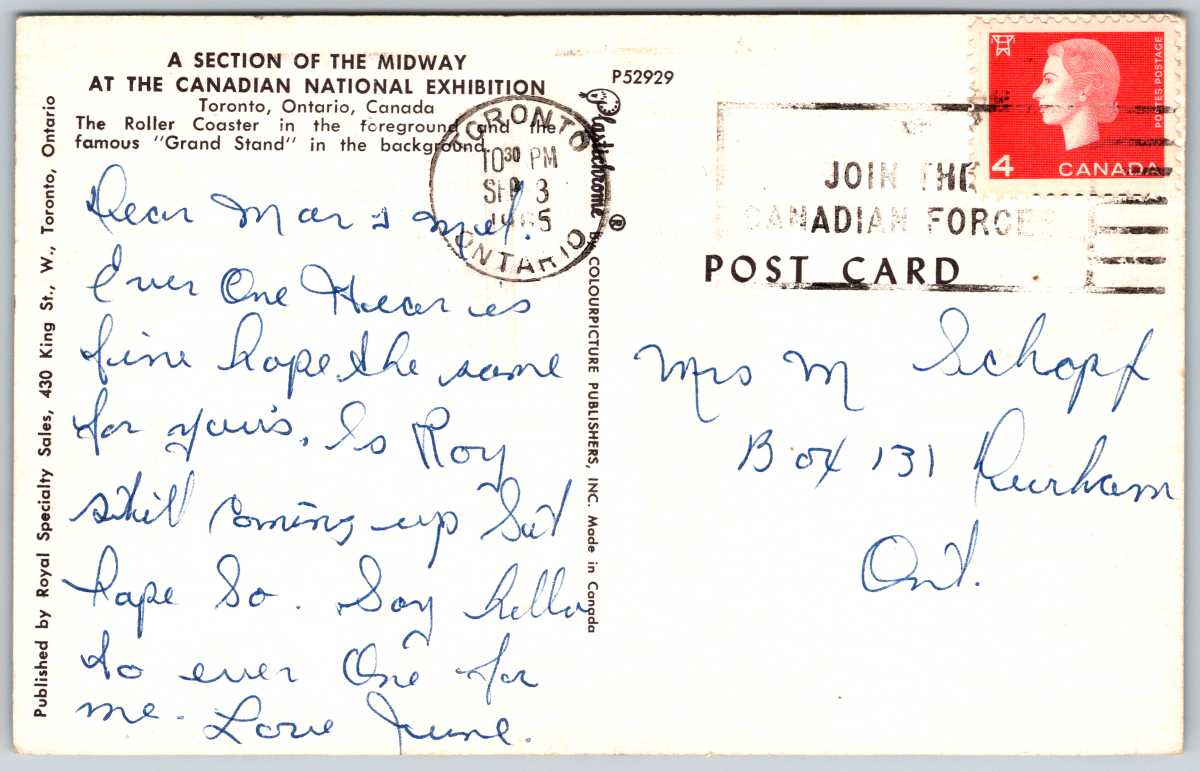 A SECTION OF THE MIDWAY
AT THE CANADIAN NATIONAL EXHIBITION
Toronto, Ontario, Canada
The Roller Coaster in the foreground and the
famous "Grand Stand" in the background.
P52929
Published by Royal Specialty Sales, 430 King St., W., Toronto, Ontario
Plastichrome ® By COLOURPICTURE PUBLISHERS, INC. Made in Canada
TORONTO
10 30 PM
SEP 3
1965
ONTARIO
JOIN THE
CANADIAN FORCES
POSTES POSTAGE
4 CANADA
POST CARD
Dear Mar & Mel.
Ever One Hear is
fine hope the same
for your's. Is Roy
still coming up Sat
hope So. Say hello
to ever One for
me. Love June.
Mrs M Schopf
Box 131 Durham
Ont.